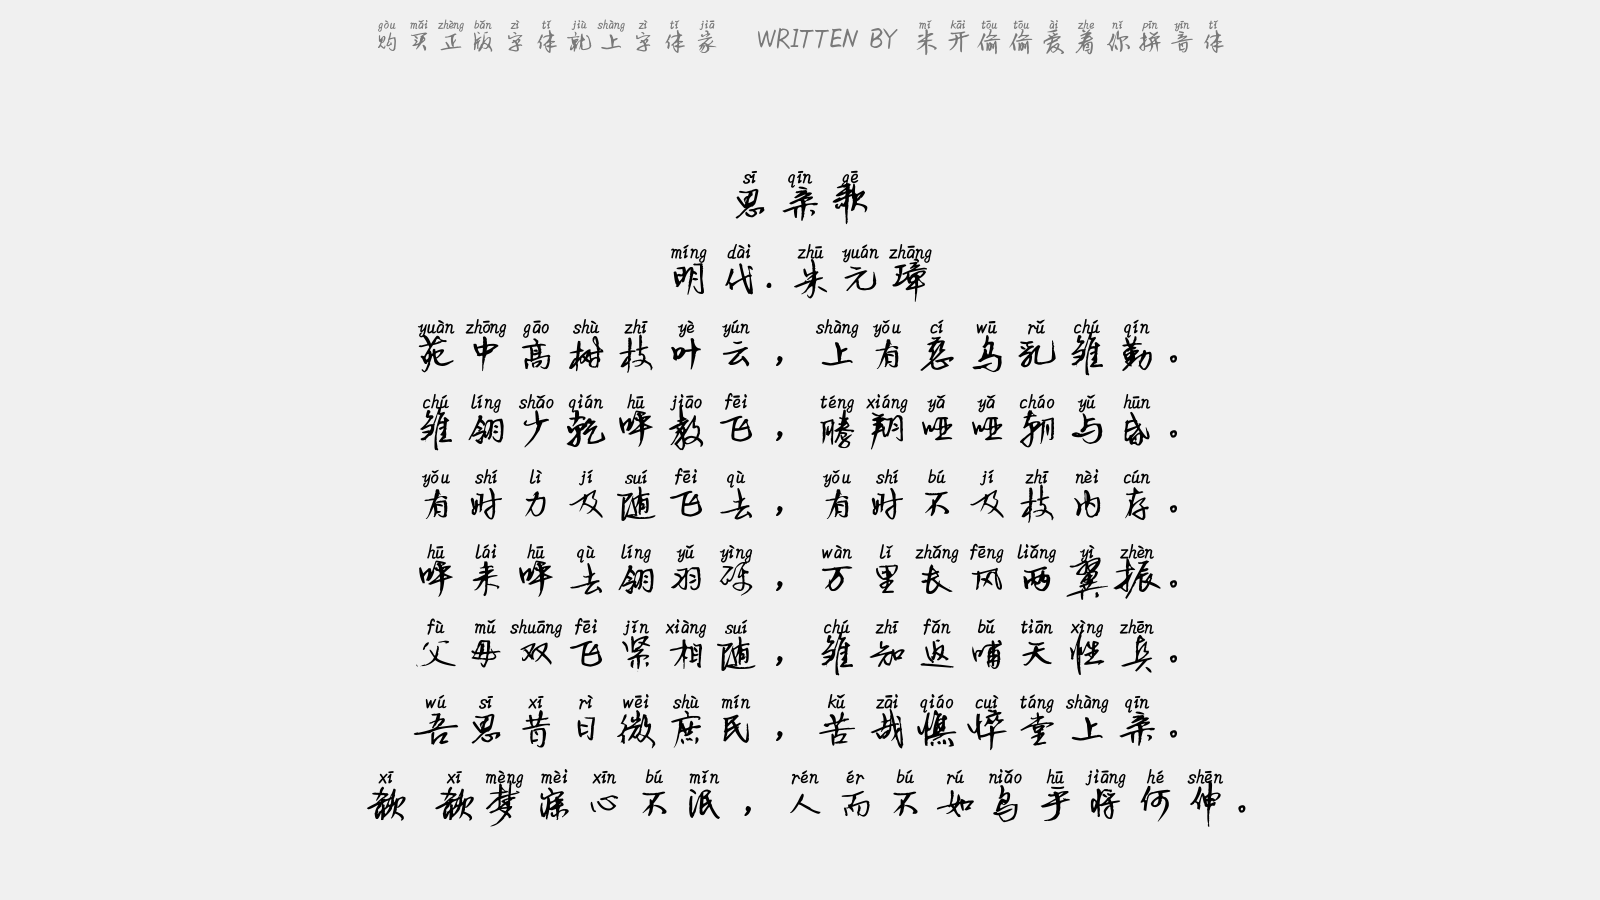 购买正版字体就上字体家 WRITTEN BY 米开偷偷爱着你拼音体
sī qīn gē
思亲歌
míng dài zhū yuán zhāng
明代.朱元璋
yuàn zhōng gāo shù zhī yè yún shàng yǒu cí wū rǔ chú qín
苑中高树枝叶云，上有慈乌乳雏勤。
chú líng shǎo qián hū jiāo fēi téng xiáng yǎ yǎ cháo yǔ hūn
雏翎少乾呼教飞，腾翔哑哑朝与昏。
yǒu shí lì jí suí fēi qù yǒu shí bú jí zhī nèi cún
有时力及随飞去，有时不及枝内存。
hū lái hū qù líng yǔ yìng wàn lǐ zhǎng fēng liǎng yì zhèn
呼来呼去翎羽硬，万里长风两翼振。
fù mǔ shuāng fēi jǐn xiàng suí chú zhī fǎn bǔ tiān xìng zhēn
父母双飞紧相随，雏知返哺天性真。
wú sī xī rì wēi shù mín kǔ zāi qiáo cuì táng shàng qīn
吾思昔日微庶民，苦哉憔悴堂上亲。
xī xī mèng mèi xīn bú mǐn rén ér bú rú niǎo hū jiāng hé shēn
欷 欷梦寐心不泯，人而不如鸟乎将何伸。